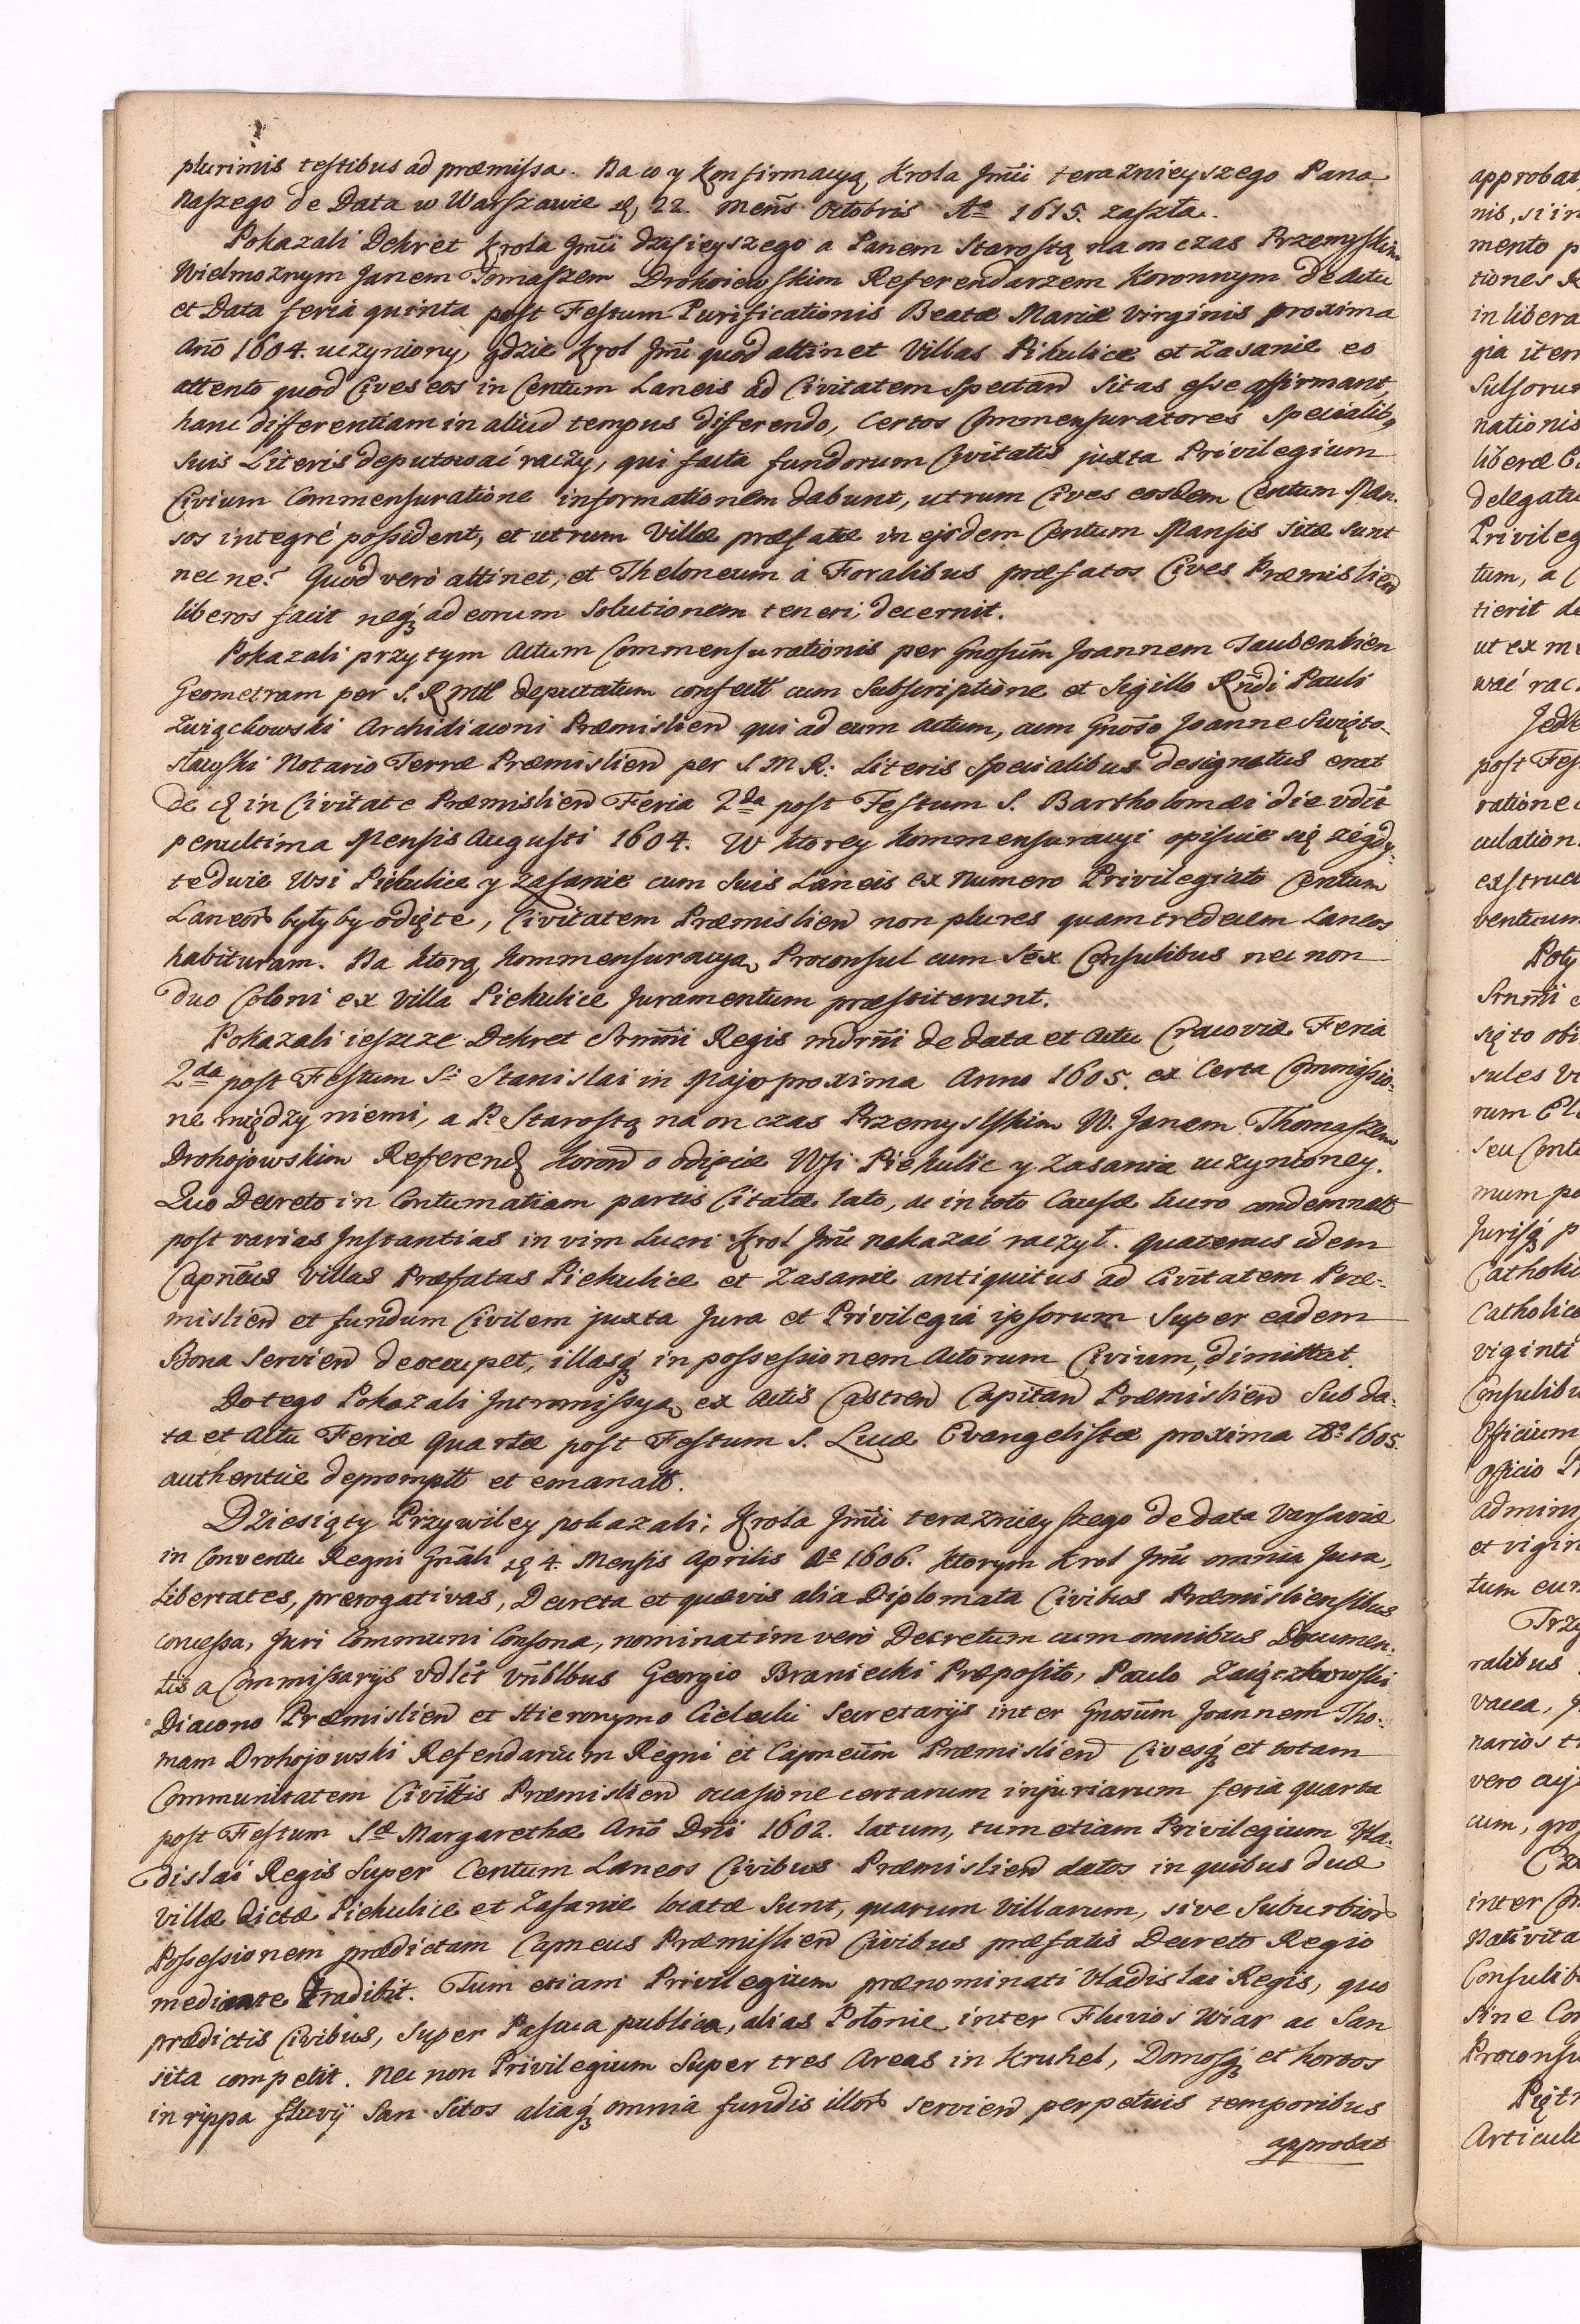 plurimis testibus ad præmissa. Na co y konfirmacyą Krola Jmci teraznieyszego Pana
Naszego de Data w Warszawie 22. Mens Octobris Aō 1615. zaszła.
Pokazali Dekret Krola Jmci dzisieyszego a Panem Starostą na on czas Przemyskim
Wielmożnym Janem Tomaszem Drohoiewskim Referendarzem Koronnym de actu
et Data feria quinta post Festum Purificationis Beatæ Mariæ Virginis proxima
Anō 1604. uczyniony, gdzie Krol Jmć quod attinet Villas Pikulice et Zasanie eo
attento quod Cives eos in Centum Laneis ad Civitatem spectand sitas esse affirmant,
hanc differentiam in aliud tempus differendo, Certos Commensuratores Specialibq
suis Literis deputować raczy, qui facta fundorum Civitatis juxta Privilegium
Civium Commensuratione informationem dabunt, utrum Cives eosdem Centum Man-
sos integré possident, et utrum Villæ præfatæ in ejsdem Centum Mansis sitæ sunt
nec ne? Quod veró attinet, et Theloneum á Foralibus præfatos Cives Præmislien
liberos facit neq́ ad eorum Solutionem teneri, decernit.
Pokazali przytym Actum Commensurationis per Gnosum Joannem Taubenhien
Geometram per S. R Mtt deputatum confectt cum Subscriptione et Sigillo Rndi Pauli
Zaiączkowski Archidiaconi Præmislien qui ad eum actum, cum Gnoso Joanne Święto-
sławski Notario Terræ Præmislien per S M R: Literis Specialibus designatus erat
de in Civitate Præmislien Feria 2da post Festum S. Bartholomæi die vdlt
penultima Mensis Augusti 1604. W ktorey kommensuracyi opisuie się że gdy-
te dwie Wsi Piekulice y Zasanie cum suis Laneis ex Numero Privilegiato Centum
Laneor byłyby odięte, Civitatem Præmislien non plures quam tredecem Laneos
habituram. Na ktorą kommensuracyą Proconsul cum Sex Consulibus nec non
duo Coloni ex Villa Piekulice Juramentum præstiterunt.
Pokazali ieszcze Dekret Srnmi Regis mdrni de data et actu Cracoviæ Feria
2da post Festum Si Stanislai in Majo proxima Anno 1605. ex Certa Commissio-
ne między niemi, a P. Starostą na on czas Przemyslskim W. Janem Thomaszem
Drohojowskim Referend Koron o odięcie Wsi Piekulic y Zasania uczynioney.
Quo Decreto in Contumatiam partis Citatæ lato, ac in toto Causæ lucro condemnatt
post varias Instantias in vim Lucri Krol Jmć nakazać raczył. quatenus idem
Capneus Villas Præfatas Piekulice et Zasanie antiquitus ad Civitatem Præ-
mislien et fundum Civilem juxta Jura et Privilegia ipsorum Super eadem
Bona Servien deoccupet, illasq́ in possessionem Actorum Civium, dimittat.
Do tego Pokazali Intromissyą ex Actis Castren Capitan Præmislien Sub da-
ta et Actu Feriæ Quartæ post Festum S. Lucæ Evangelistæ proxima Aō 1605.
authentice depromptt et emanatt.
Dziesiąty Przywiley pokazali, Krola Jmći teraznieyszego de data Varsaviæ
in Conventu Regni Gnāli 4. Mensis Aprilis Aō 1606. ktorym Krol Jmć omnia Jura,
libertates, prærogativas, Decreta et quævis alia Diplomata Civibus Præmisliensibus
concessa, Juri Communi Consona, nominatim veró Decretum cum omnibus Documen-
tis a Commissarijs vdlct vnblbus Georgio Braniecki Præposito, Paulo Zaiączkowski
Diacono Præmislien et Hieronymo Cielecki Secretarijs inter Gnosum Joannem Tho-
mam Drohojowski Refendarium Regni et Capneum Præmislien Civesq́ et totam
Communitatem Civittis Præmislien occasione certarum injuriarum feria quarta
post Festum Sæ Margarethæ Anō Dni 1602. latum, tum etiam Privilegium Vla-
dislai Regis Super Centum Laneos Civibus Præmislien datos in quibus duæ
Villæ dictæ Piekulice et Zasanie locatæ Sunt, quarum Villarum, sive Suburbior
Possessionem prædictam Capneus Præmislien Civibus præfatis Decreto Regio
mediante tradibit. Tum etiam Privilegium prænominati Vladislai Regis, quo
prædictis Civibus, super Pascua publica, alias Potonie inter Fluvios Wiar ac San
sita competit. Nec non Privilegium Super tres Areas in Kruhel, Domosq́ et hortos
in rippa fluvij San Sitos aliaq́ omnia fundis illor servien perpetuis temporibus
approbat
approbat
nis, si in
mento p
tiones R
in libera
gia item
Sulsorum
nationis
liberæ
delegatu
Privileg
tum, a
tierit de
ut ex me
wać rac
Jede
post Fes
ratione
culation
exstruct
ventuum
Poty
Srnmi
się to obi
sules
rum
seu Conte
num po
Jurisq́ p
Catholi
Catholico
viginti
Consulibu
Officium
Officio
admini
et vigin
tum eun
Trzy
ralibus
vacca,
narios tr
vero
cum, gro
inter
Nativita
Consulib
sine Con
Proconsu
Piąt
Articul